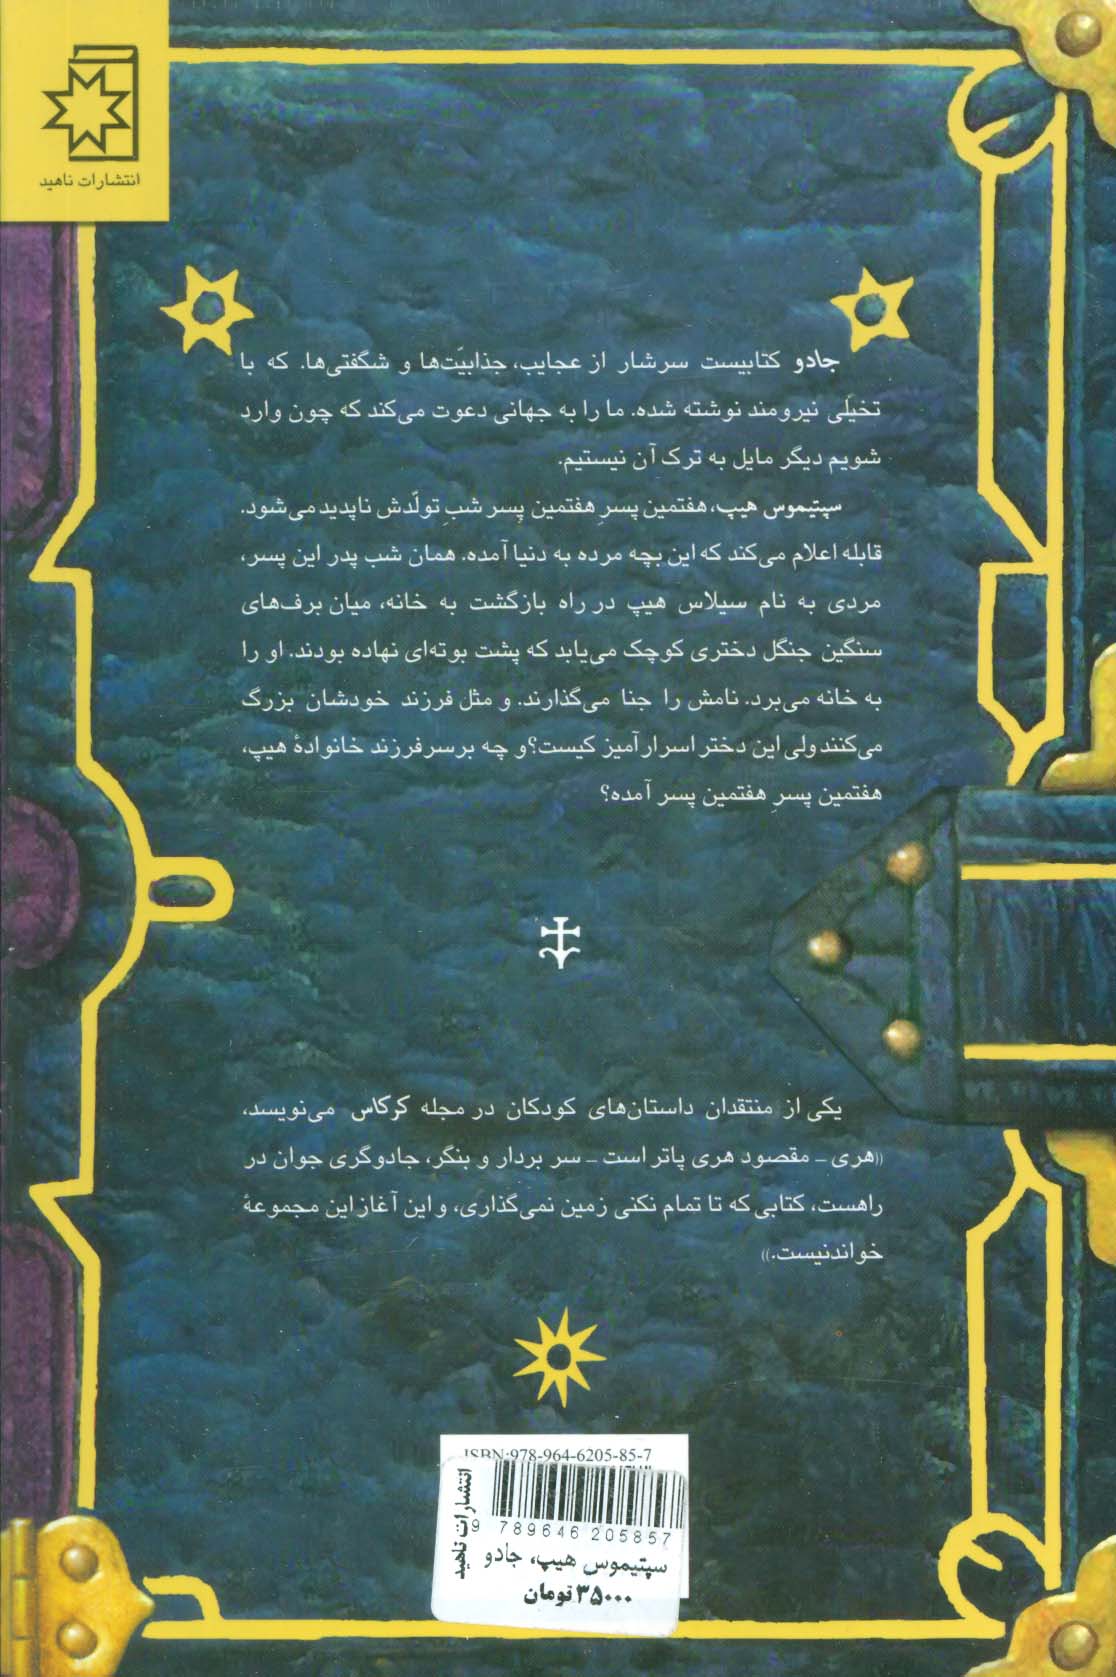 انتشارات ناهید
جادو کتابیست سرشار از عجایب، جذابیّت‌ها و شگفتی‌ها. که با
تخیّلی نیرومند نوشته شده. ما را به جهانی دعوت می‌کند که چون وارد
شویم دیگر مایل به ترک آن نیستیم.
سپتیموس هیپ، هفتمین پسرِ هفتمین پسر شبِ تولّدش ناپدید می‌شود.
قابله اعلام می‌کند که این بچه مرده به دنیا آمده. همان شب پدر این پسر،
مردی به نام سیلاس هیپ در راه بازگشت به خانه، میان برف‌های
سنگین جنگل دختری کوچک می‌یابد که پشت بوته‌ای نهاده بودند. او را
به خانه می‌برد. نامش را جنا می‌گذارند. و مثل فرزند خودشان بزرگ
می‌کنند ولی این دختر اسرارآمیز کیست؟ و چه بر سر فرزند خانوادهٔ هیپ،
هفتمین پسرِ هفتمین پسر آمده؟
یکی از منتقدان داستان‌های کودکان در مجله کرکاس می‌نویسد،
((هری ـ مقصود هری پاتر است ـ سر بردار و بنگر، جادوگری جوان در
راهست، کتابی که تا تمام نکنی زمین نمی‌گذاری، و این آغاز این مجموعهٔ
خواندنیست.))
ISBN:978-964-6205-85-7
انتشارات ناهید
9 789646 205857
سپتیموس هیپ، جادو
۳۵۰۰۰ تومان